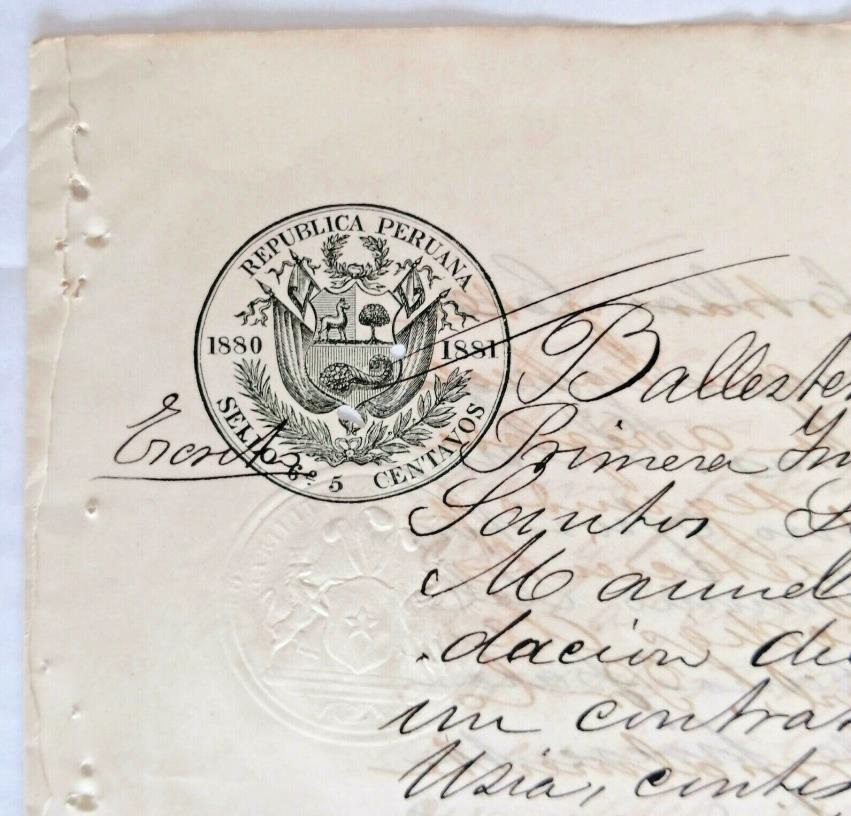 REPUBLICA PERUANA
1880 1881
SELLO 8º 5 CENTAVOS
Ballester
Primera In
Santos
Manuel
dacion de
un contra
Usia, contes